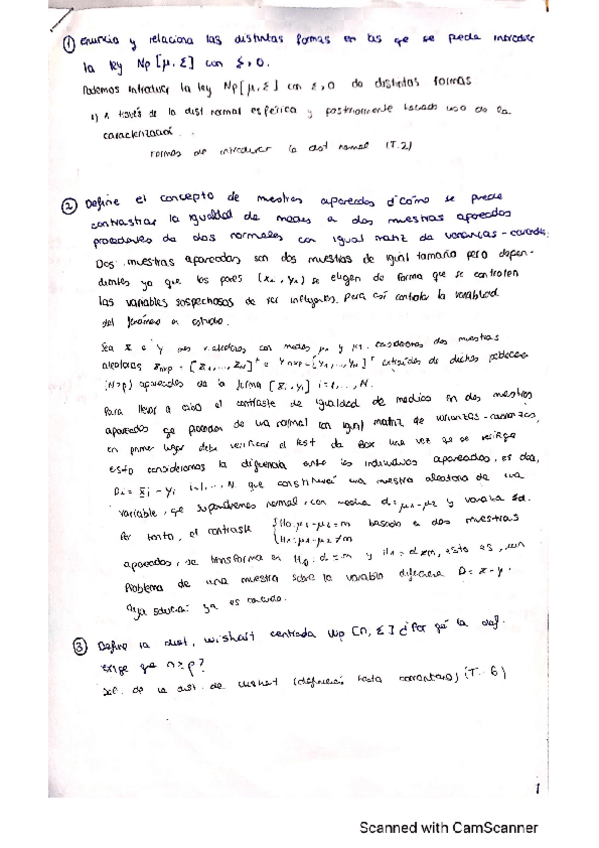 ① Enuncia y relaciona las distintas formas en las que se puede introducir
la ley Np[μ, Σ] con Σ>0.
Podemos introducir la ley Np[μ, Σ] con Σ>0 de distintas formas
1) A través de la dist normal esférica y posteriormente haciendo uso de la
caracterización.
formas de introducir la dist normal (T.2)
② Define el concepto de muestras apareadas ¿Cómo se puede
contrastar la igualdad de medias a dos muestras apareadas
procedentes de dos normales con igual matriz de varianzas-covarianzas
Dos muestras apareadas son dos muestras de igual tamaño pero depen-
dientes ya que los pares se eligen de forma que se controlen
las variables sospechosas de ser influyentes, para así controlar la variabilidad
del fenómeno en estudio.
Sea X e Y con medias consideremos dos muestras
aleatorias extraídas de dichas poblaciones
(N>p) apareadas de la forma i=1,...,N.
Para llevar a cabo el contraste de igualdad de medias en dos muestras
apareadas que procedan de una normal con igual matriz de varianzas-covarianzas,
en primer lugar debe verificar el test de Box una vez que se verifique
esto consideramos la diferencia entre los individuos apareados, es decir,
i=1,...,N que constituirá una muestra aleatoria de una
variable, que supondremos normal, con media d=μ1-μ2 y varianza
Por tanto, el contraste H0:μ1-μ2=m H1:μ1-μ2≠m basado en dos muestras
apareadas, se transforma en H0:d=m y H1=d≠m, esto es, un
problema de una muestra sobre la variable diferencia D=X-Y.
solución ya es conocida.
③ Define la dist. Wishart centrada Wp[n, Σ] ¿Por qué la def.
exige que n≥p?
de la dist. de Wishart (definición hasta comentario) (T. 6)
1
Scanned with CamScanner